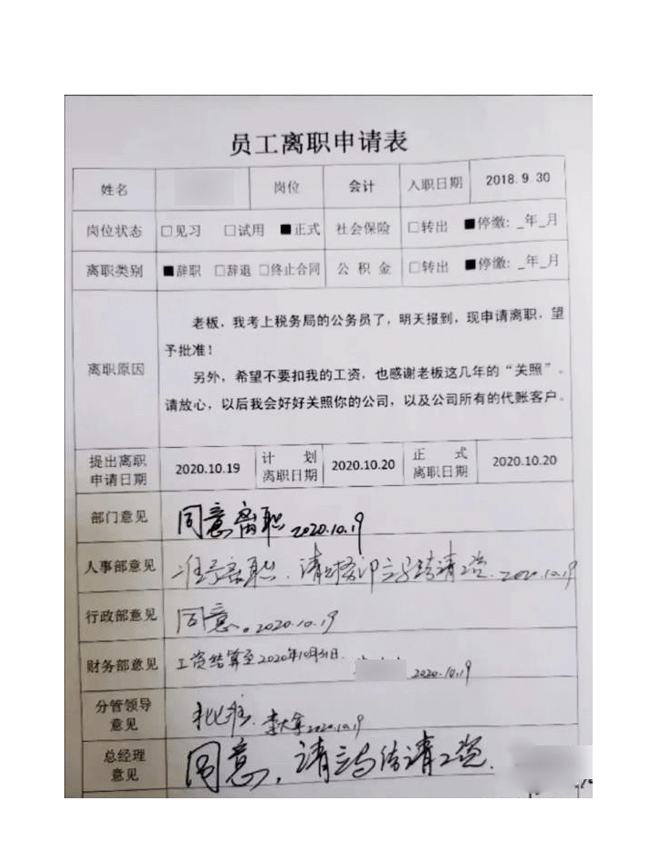 员工离职申请表
姓名 岗位 会计 入职日期 2018.9.30
岗位状态 □见习 □试用 ■正式 社会保险 □转出 ■停缴:_年_月
离职类别 ■辞职 □辞退 □终止合同 公积金 □转出 ■停缴:_年_月
离职原因
老板，我考上税务局的公务员了，明天报到，现申请离职，望
予批准！
另外，希望不要扣我的工资，也感谢老板这几年的“关照”。
请放心，以后我会好好关照你的公司，以及公司所有的代账客户。
提出离职
申请日期
2020.10.19
计划
离职日期
2020.10.20
正式
离职日期
2020.10.20
部门意见 同意离职 2020.10.19
人事部意见 准予离职，请 立马结清工资. 2020.10.19
行政部意见 同意。2020.10.19
财务部意见 工资结算至2020年10月31日. 2020.10.19
分管领导
意见
批准. 李大 2020.10.19
总经理
意见
同意，请立马结清工资.